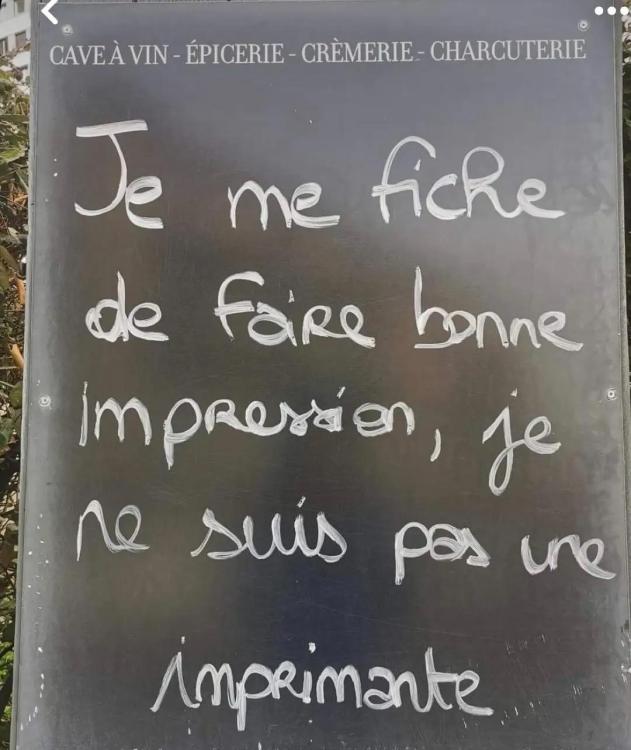 CAVE À VIN - ÉPICERIE - CRÈMERIE - CHARCUTERIE
Je me fiche
de faire bonne
impression, je
ne suis pas une
imprimante